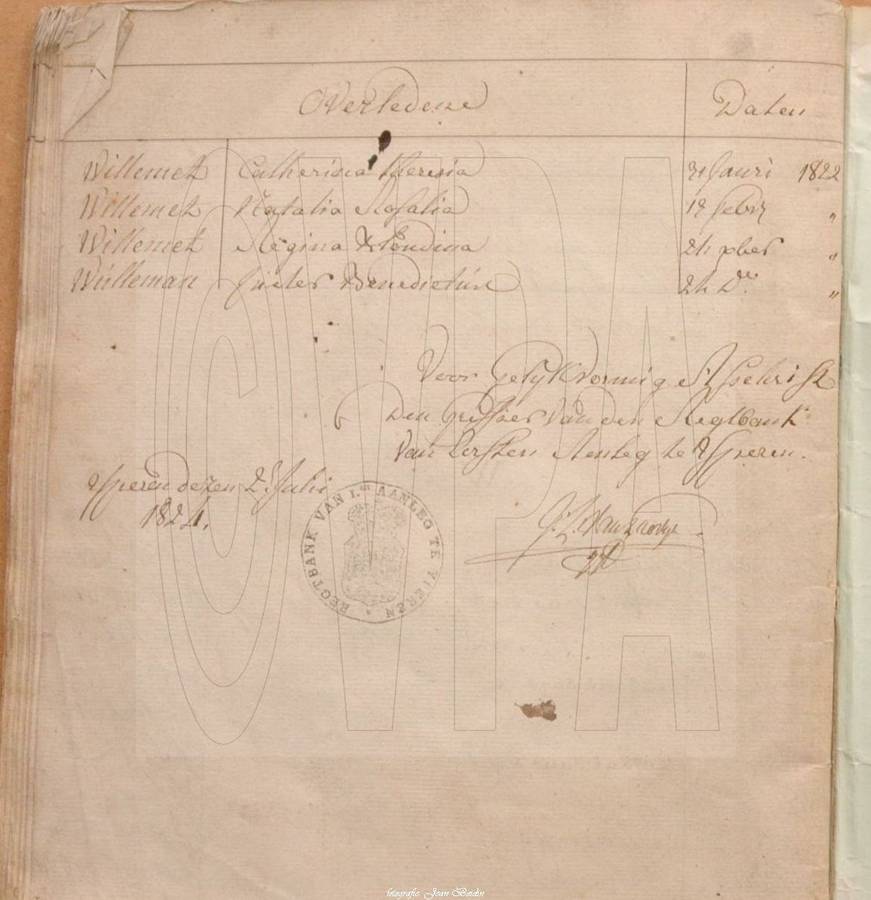 Overledene Daten
Willemet Catherina Theresia 31 Januri 1822
Willemet Natalia Rosalia 19 febry "
Willemet Regina Blondina 24 xber "
Wulleman pieter Benedictus 24 d° "
Voor gelykvormig Afschrift
Den Griffier van den Regtbank
Van Eersten Aenleg te Yperen.
Yperen dezen 2 Julii
1824.
REGTBANK VAN 1.EN AANLEG TE YPEREN
CVPA
fotografie: Jean Baudin